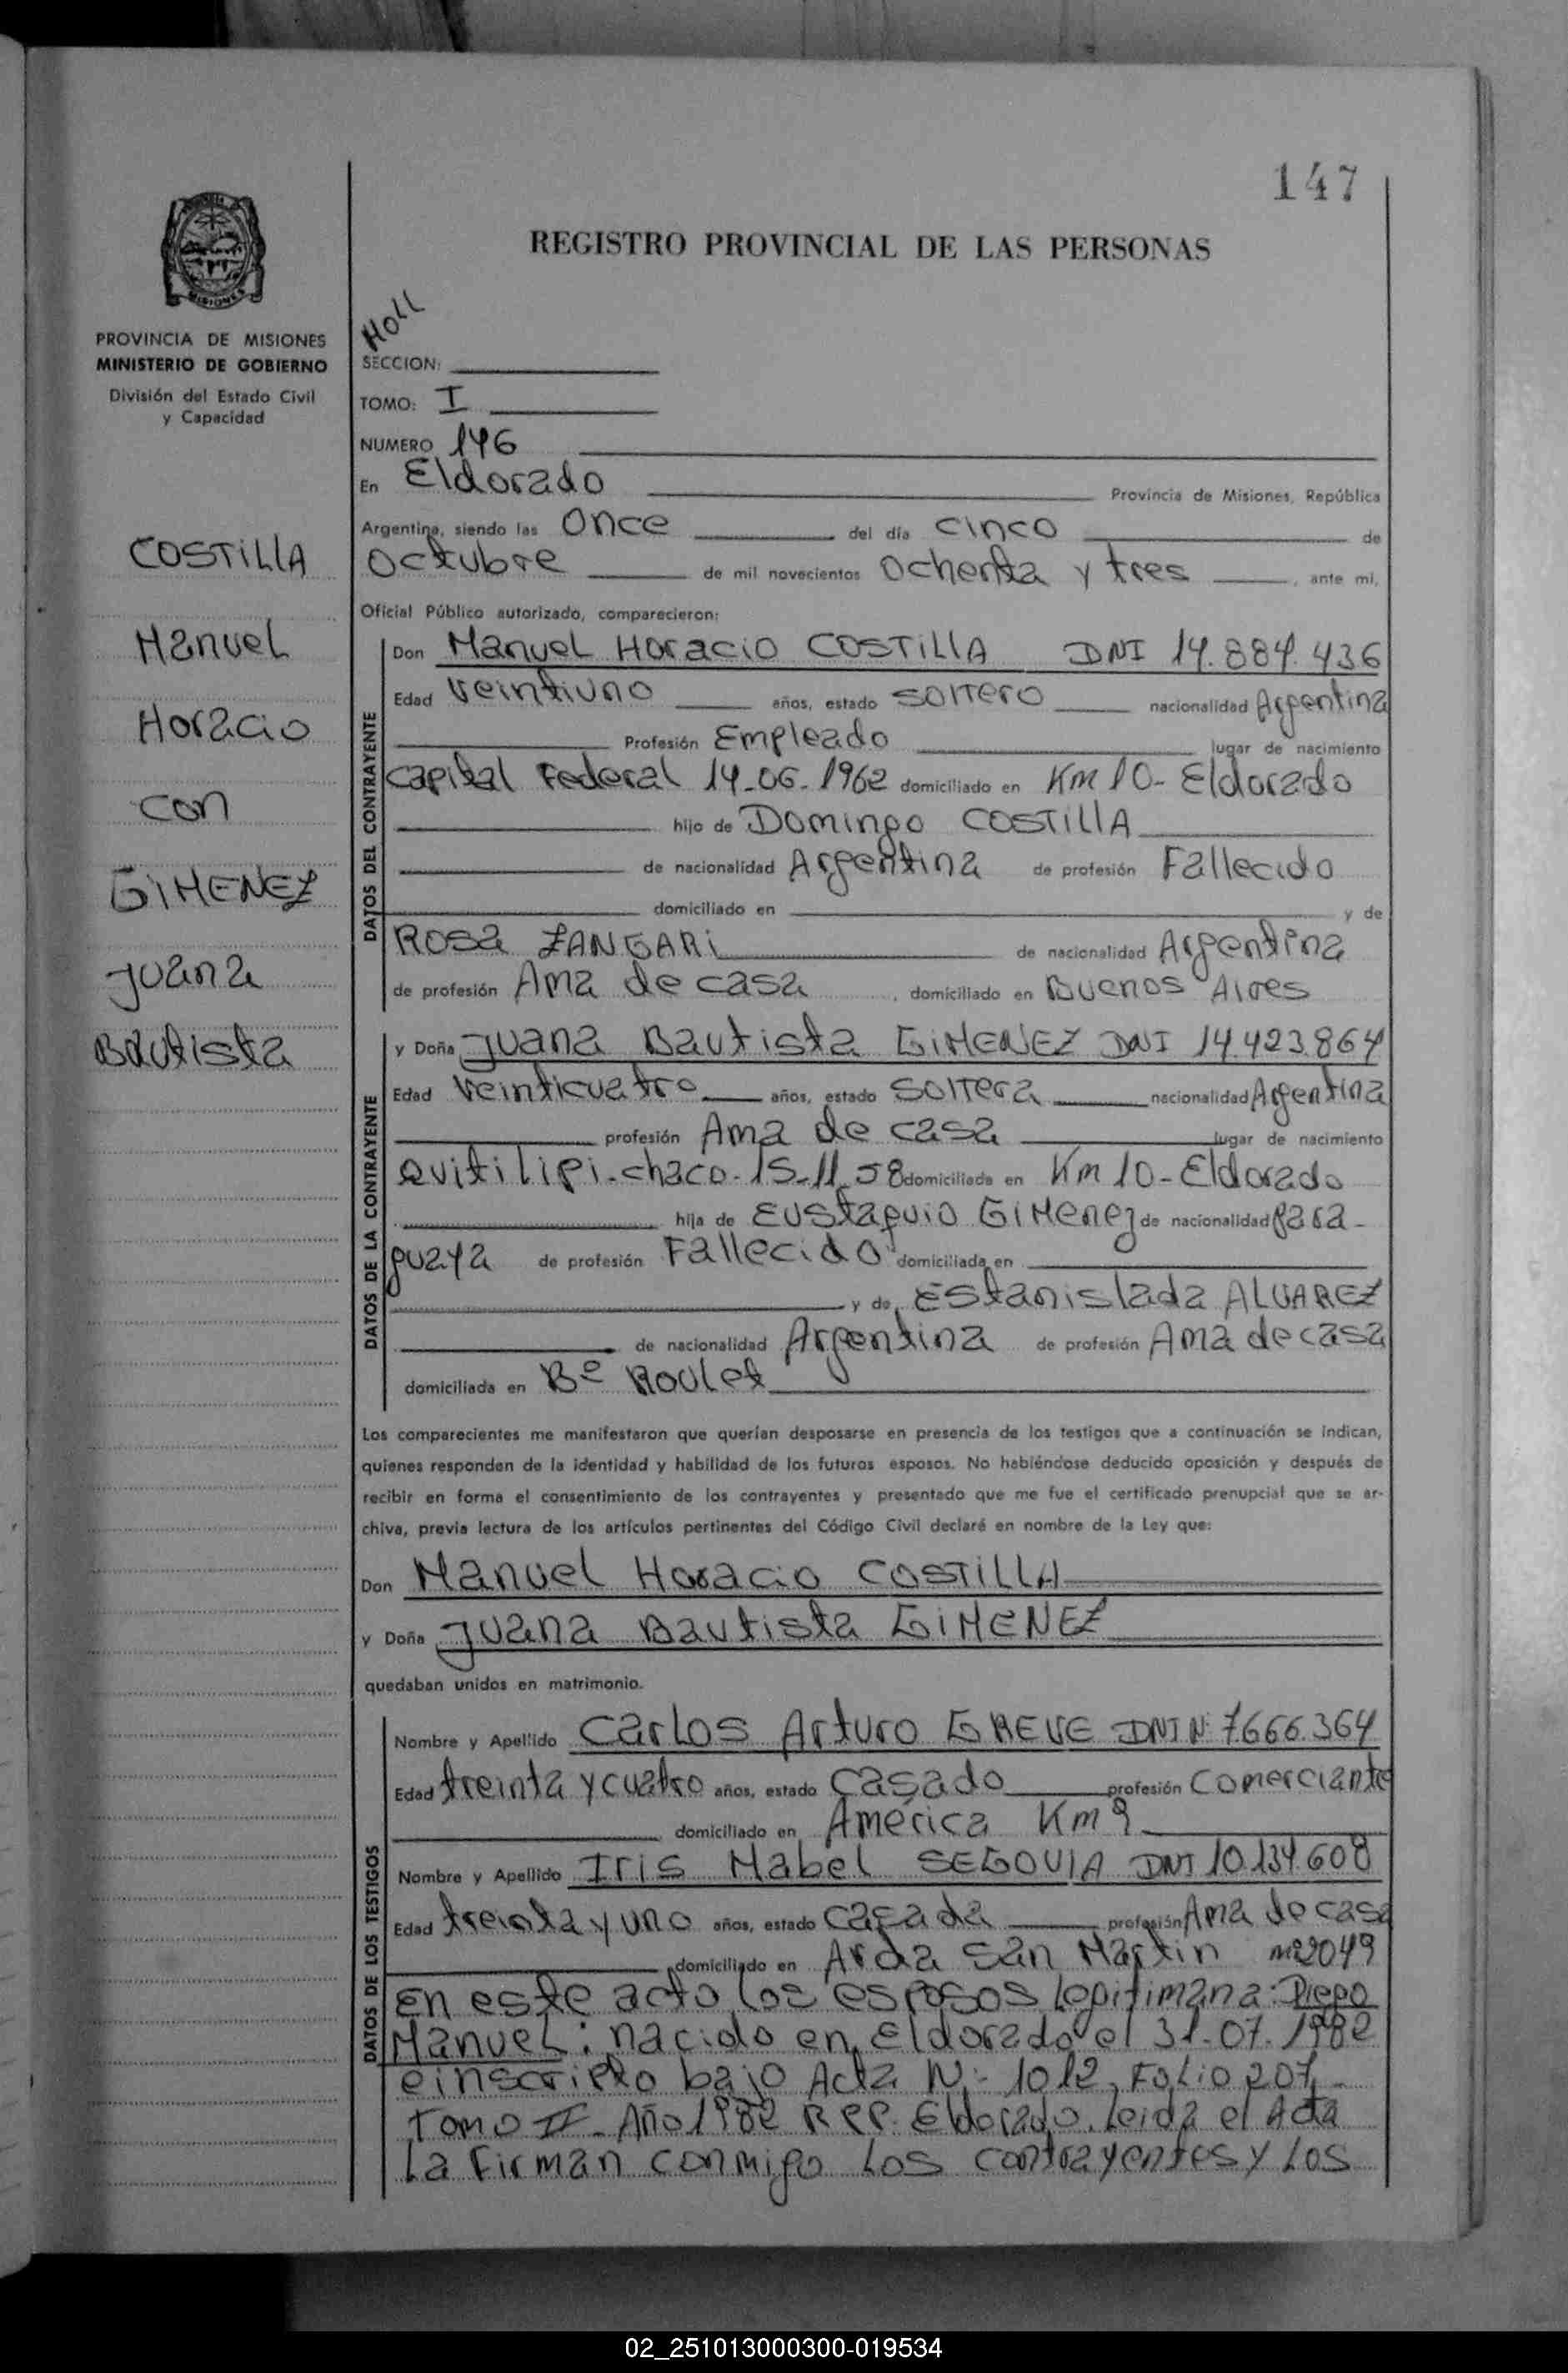 147
REGISTRO PROVINCIAL DE LAS PERSONAS
MISIONES
PROVINCIA DE MISIONES
MINISTERIO DE GOBIERNO
División del Estado Civil
y Capacidad
COSTILLA
Manuel
Horacio
con
GIMENEZ
Juana
Bautista
SECCION:
TOMO: I
NUMERO 146
En Eldorado Provincia de Misiones, República
Argentina, siendo las Once del día cinco de
Octubre de mil novecientos Ochenta y tres, ante mí,
Oficial Público autorizado, comparecieron:
DATOS DEL CONTRAYENTE
Don Manuel Horacio COSTILLA DNI 14.884.436
Edad Veintiuno años, estado soltero nacionalidad Argentina
Profesión Empleado lugar de nacimiento
Capital Federal 14-06-1962 domiciliado en Km 10- Eldorado
hijo de Domingo COSTILLA
de nacionalidad Argentina de profesión Fallecido
domiciliado en y de
Rosa ZANGARI de nacionalidad Argentina
de profesión Ama de casa, domiciliado en Buenos Aires
DATOS DE LA CONTRAYENTE
y Doña Juana Bautista GIMENEZ DNI 14.423.864
Edad Veinticuatro años, estado soltera nacionalidad Argentina
profesión Ama de casa lugar de nacimiento
Quitilipi-chaco-15-11-58 domiciliada en Km 10-Eldorado
hija de Eustaquio GIMenez de nacionalidad para-
guaya de profesión Fallecido domiciliada en
y de Estanislada ALVAREZ
de nacionalidad Argentina de profesión Ama de casa
domiciliada en Bº Roulet
Los comparecientes me manifestaron que querían desposarse en presencia de los testigos que a continuación se indican,
quienes responden de la identidad y habilidad de los futuros esposos. No habiéndose deducido oposición y después de
recibir en forma el consentimiento de los contrayentes y presentado que me fue el certificado prenupcial que se ar-
chiva, previa lectura de los artículos pertinentes del Código Civil declaré en nombre de la Ley que:
Don Manuel Horacio COSTILLA
y Doña Juana Bautista GIMENEZ
quedaban unidos en matrimonio.
DATOS DE LOS TESTIGOS
Nombre y Apellido Carlos Arturo GREVE DNI Nº 7.666.364
Edad treinta y cuatro años, estado casado profesión comerciante
domiciliado en América Km 9
Nombre y Apellido Iris Mabel SEGOVIA DNI 10.134.608
Edad treinta y uno años, estado casada profesión Ama de casa
domiciliado en Avda San Martin nº2049
En este acto los esposos legitiman a: Diego
Manuel: nacido en Eldorado el 31-07-1982
e inscripto bajo Acta Nº 1012, Folio 207,
Tomo II-Año 1982 RPP. Eldorado. Leida el Acta
La Firman conmigo Los contrayentes y Los
02_251013000300-019534